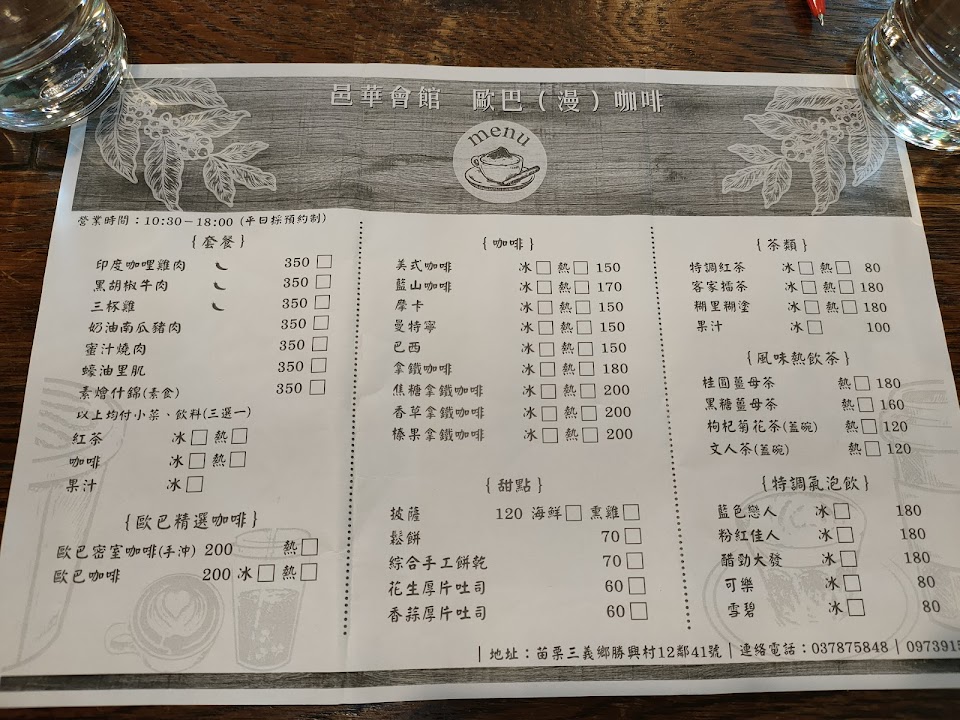 邑華會館 歐巴(漫)咖啡
menu
營業時間：10:30－18:00 (平日採預約制)
{套餐}
印度咖哩雞肉 350 □
黑胡椒牛肉 350 □
三杯雞 350 □
奶油南瓜豬肉 350 □
蜜汁燒肉 350 □
蠔油里肌 350 □
素燴什錦(素食) 350 □
以上均付小菜、飲料(三選一)
紅茶 冰□ 熱□
咖啡 冰□ 熱□
果汁 冰□
{歐巴精選咖啡}
歐巴密室咖啡(手沖) 200 熱□
歐巴咖啡 200 冰□ 熱□
{咖啡}
美式咖啡 冰□ 熱□ 150
藍山咖啡 冰□ 熱□ 170
摩卡 冰□ 熱□ 150
曼特寧 冰□ 熱□ 150
巴西 冰□ 熱□ 150
拿鐵咖啡 冰□ 熱□ 180
焦糖拿鐵咖啡 冰□ 熱□ 200
香草拿鐵咖啡 冰□ 熱□ 200
榛果拿鐵咖啡 冰□ 熱□ 200
{甜點}
披薩 120 海鮮□ 燻雞□
鬆餅 70 □
綜合手工餅乾 70 □
花生厚片吐司 60 □
香蒜厚片吐司 60 □
{茶類}
特調紅茶 冰□ 熱□ 80
客家擂茶 冰□ 熱□ 180
糊里糊塗 冰□ 熱□ 180
果汁 冰□ 100
{風味熱飲茶}
桂圓薑母茶 熱□ 180
黑糖薑母茶 熱□ 160
枸杞菊花茶(蓋碗) 熱□ 120
文人茶(蓋碗) 熱□ 120
{特調氣泡飲}
藍色戀人 冰□ 180
粉紅佳人 冰□ 180
醋勁大發 冰□ 180
可樂 冰□ 80
雪碧 冰□ 80
| 地址：苗栗三義鄉勝興村12鄰41號 | 連絡電話：037875848 | 0973915